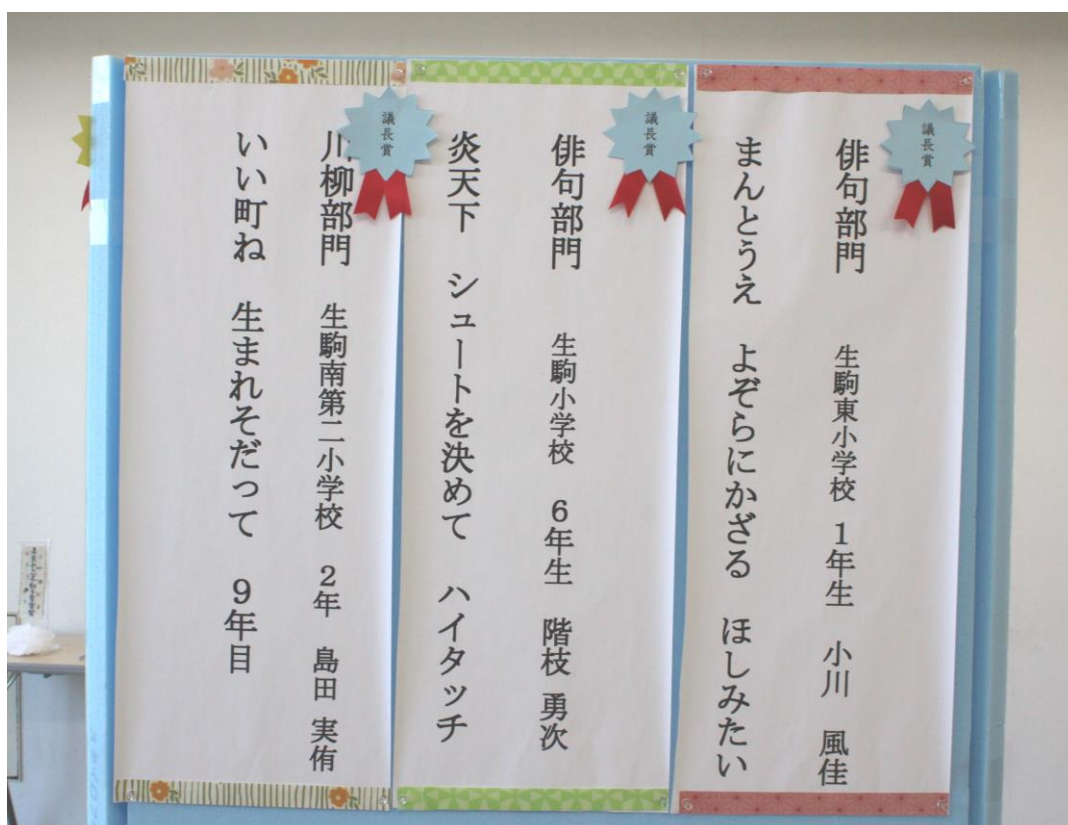 議長賞
俳句部門　生駒東小学校　1年生　小川　風佳
まんとうえ　よぞらにかざる　ほしみたい
議長賞
俳句部門　生駒小学校　6年生　階枝　勇次
炎天下　シュートを決めて　ハイタッチ
議長賞
川柳部門　生駒南第二小学校　2年　島田　実侑
いい町ね　生まれそだって　9年目